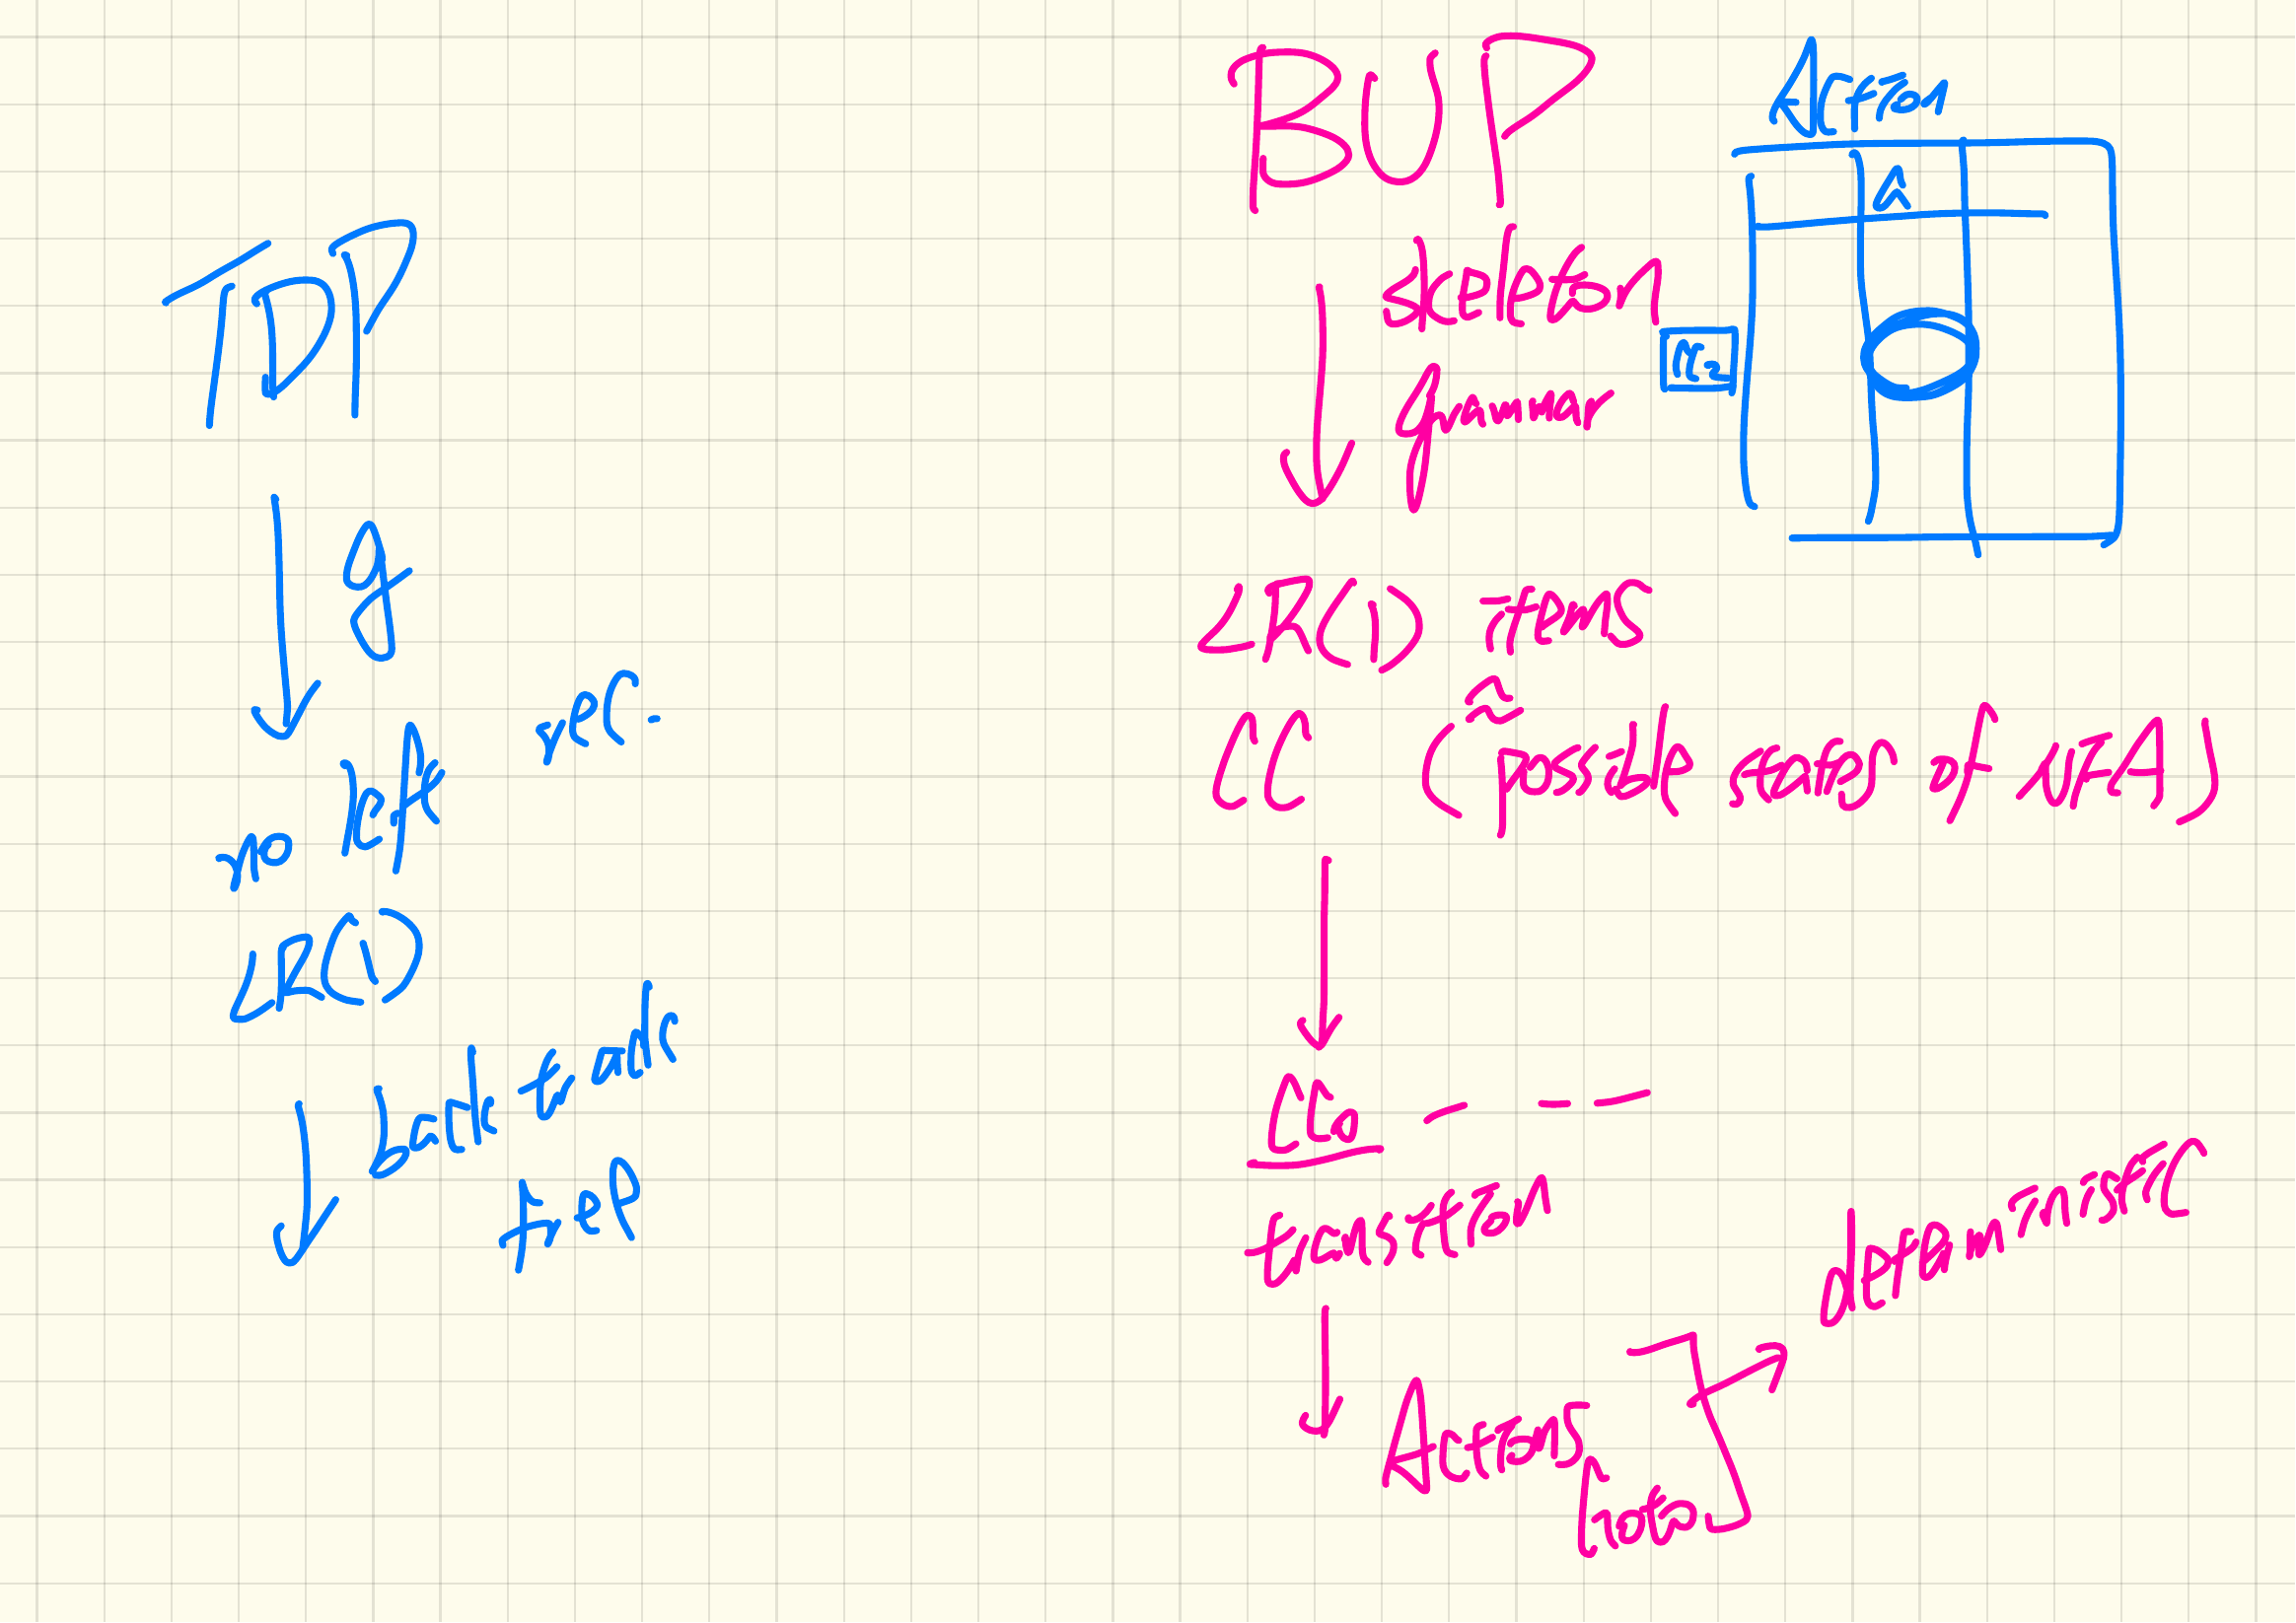 TDP
g
no left rec.
LR(1)
backtrack
free
BUP
skeleton
grammar
LR(1) items
CC (≈ possible states of NFA)
CC0 - - -
transition
Actions
Goto
deterministic
Action
a
CC2